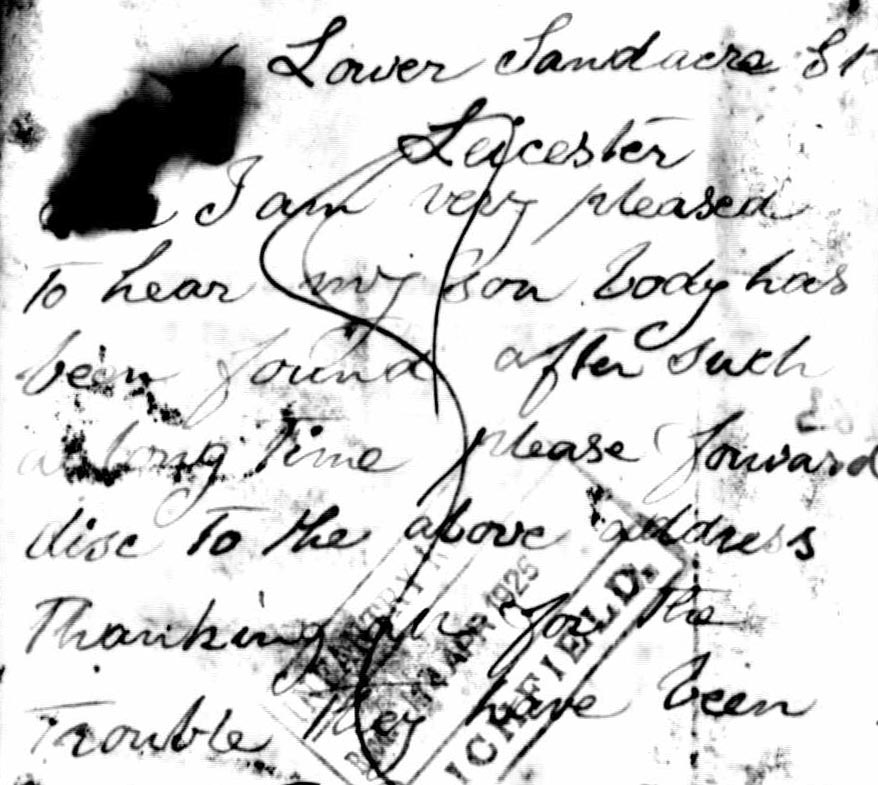 Lower Sandacre St
Leicester
I am very pleased
to hear my son body has
been found after such
a long time please forward
disc to the above address
Thanking all for the
trouble they have been
INFANTRY
14 APR 1925
LICHFIELD.